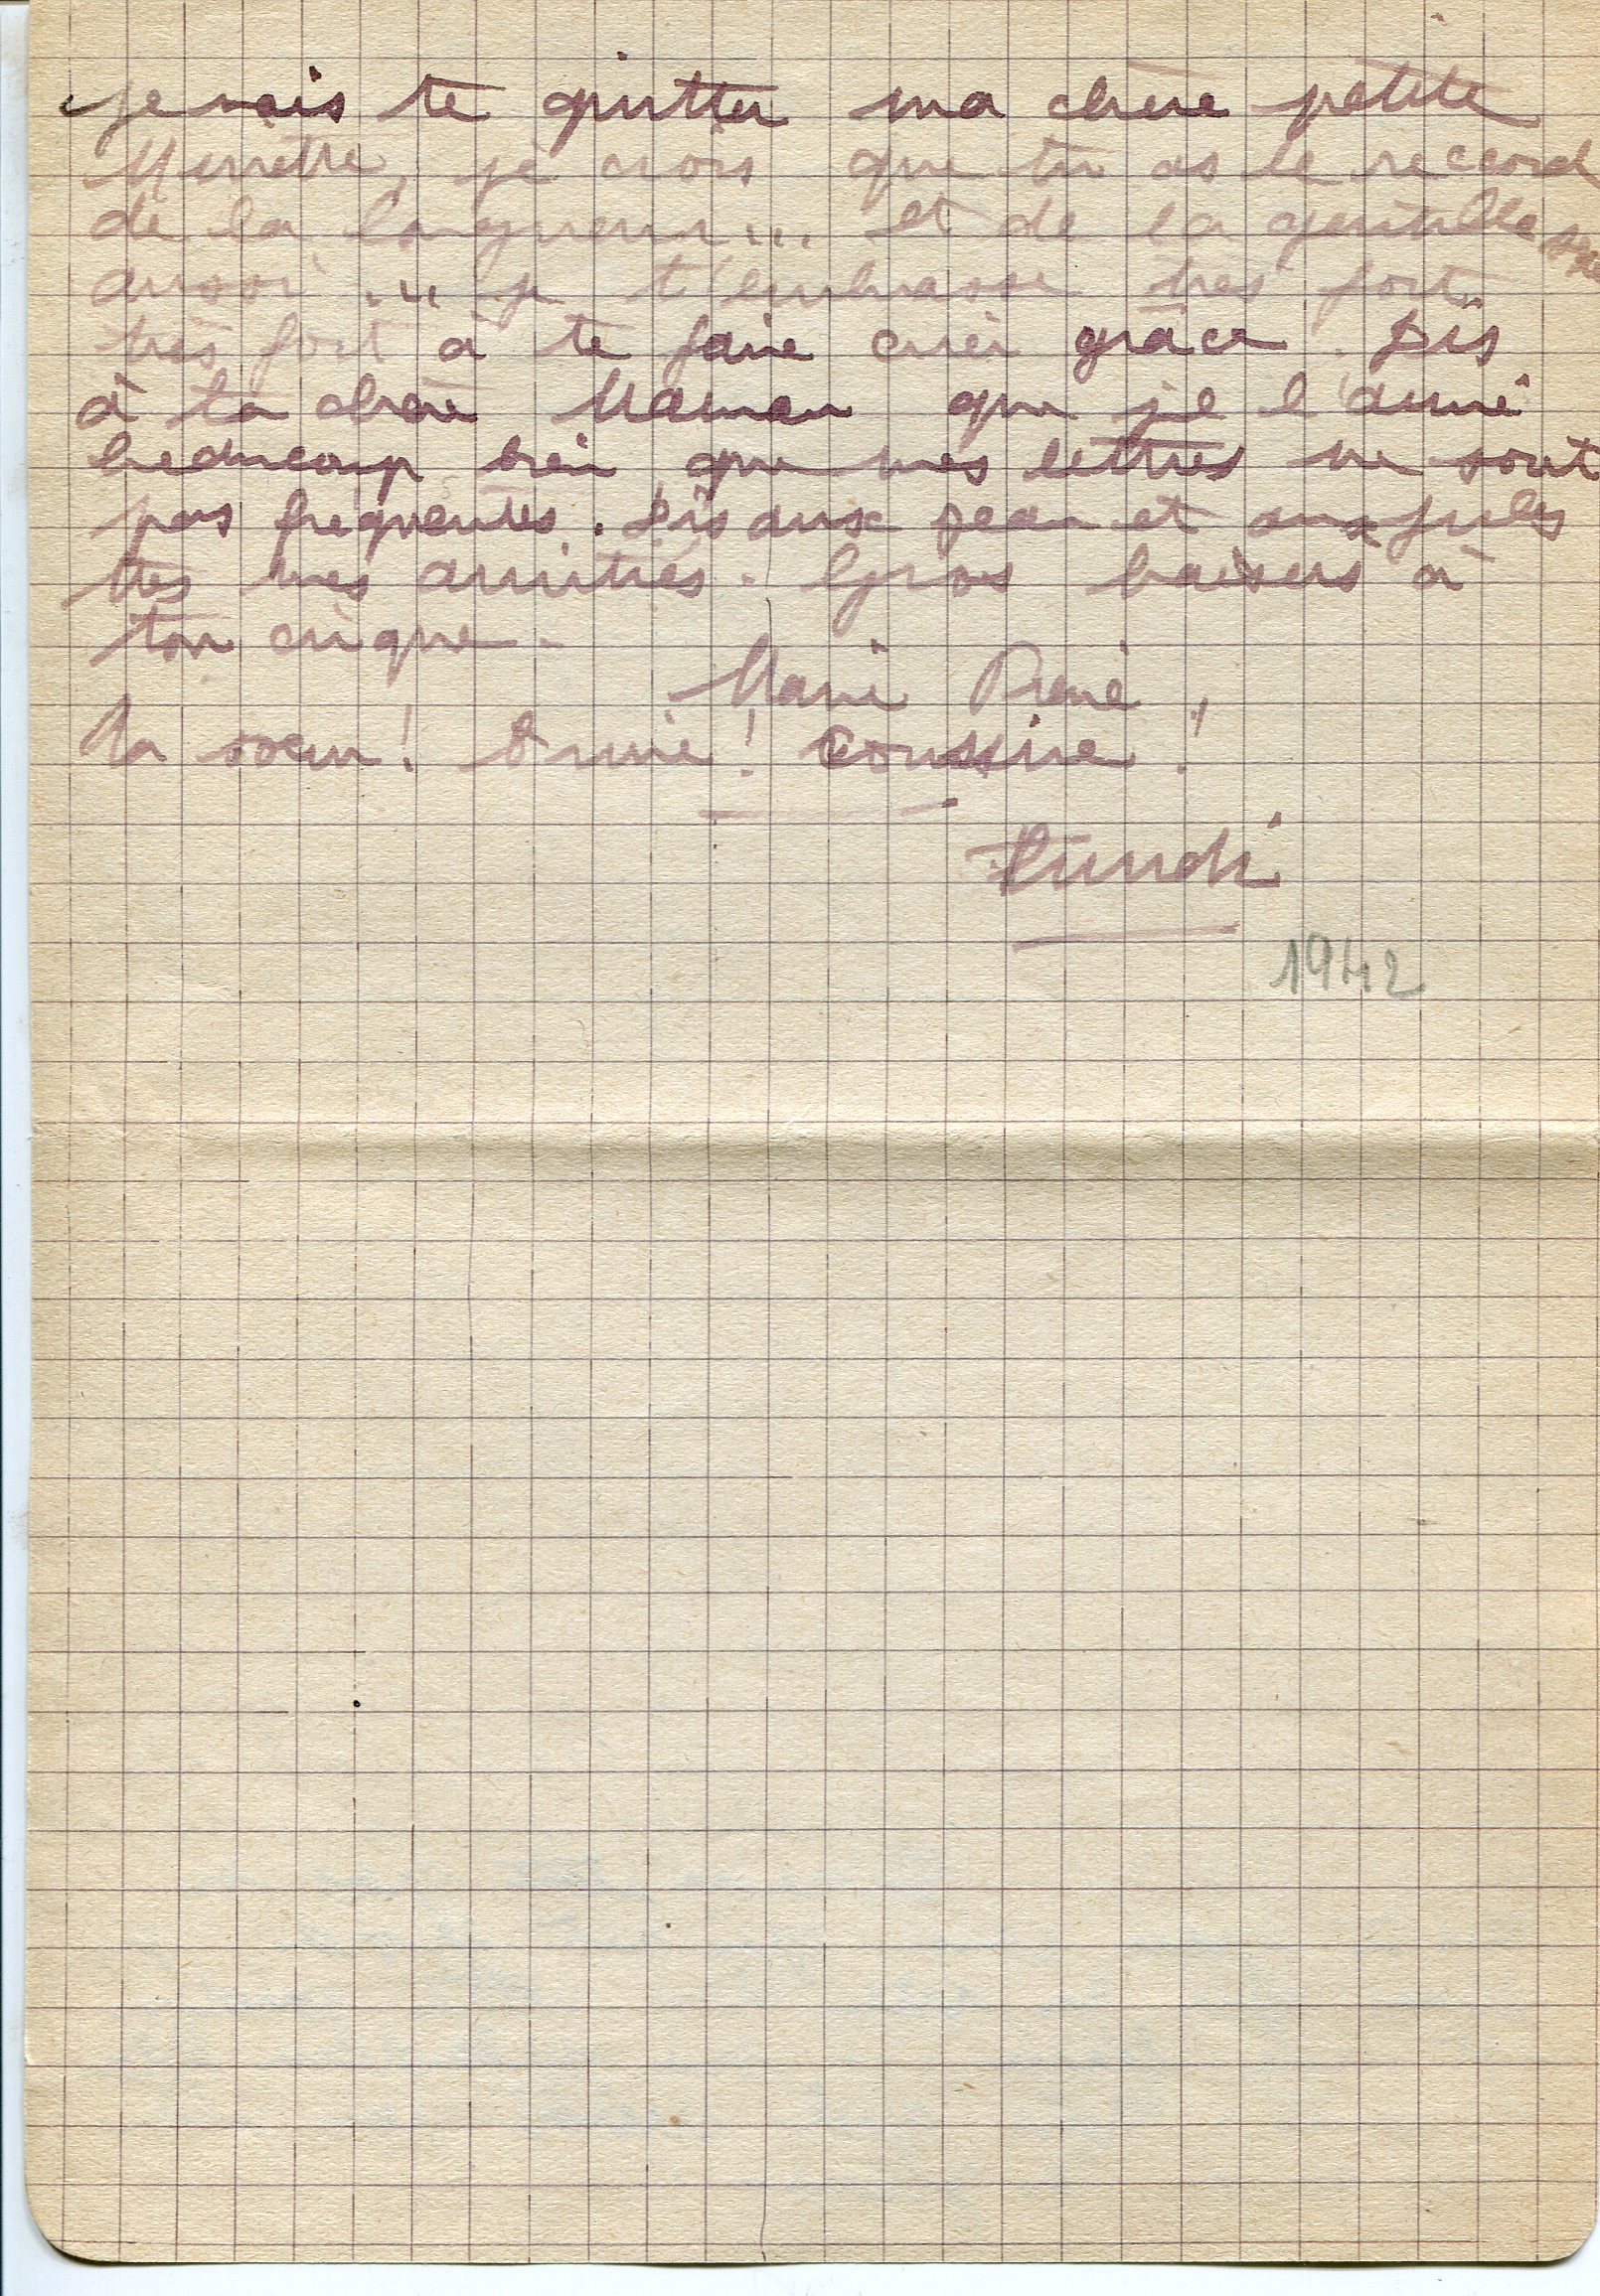 Je vais te quitter ma chère petite
Minette, je crois que tu as le reccord
de la longueur... et de la gentillesse
aussi ... je t'embrasse très fort
très fort à te faire crier grâce. Dis
à ta chère Maman que je l'aime
beaucoup bien que mes lettres ne sont
pas fréquentes. Dis aux Jean et aux Jules
ttes mes amitiés. Gros baisers à
ton cirque.
Marie René,
Ta soeur! Amie! Cousine!
Lundi
1942